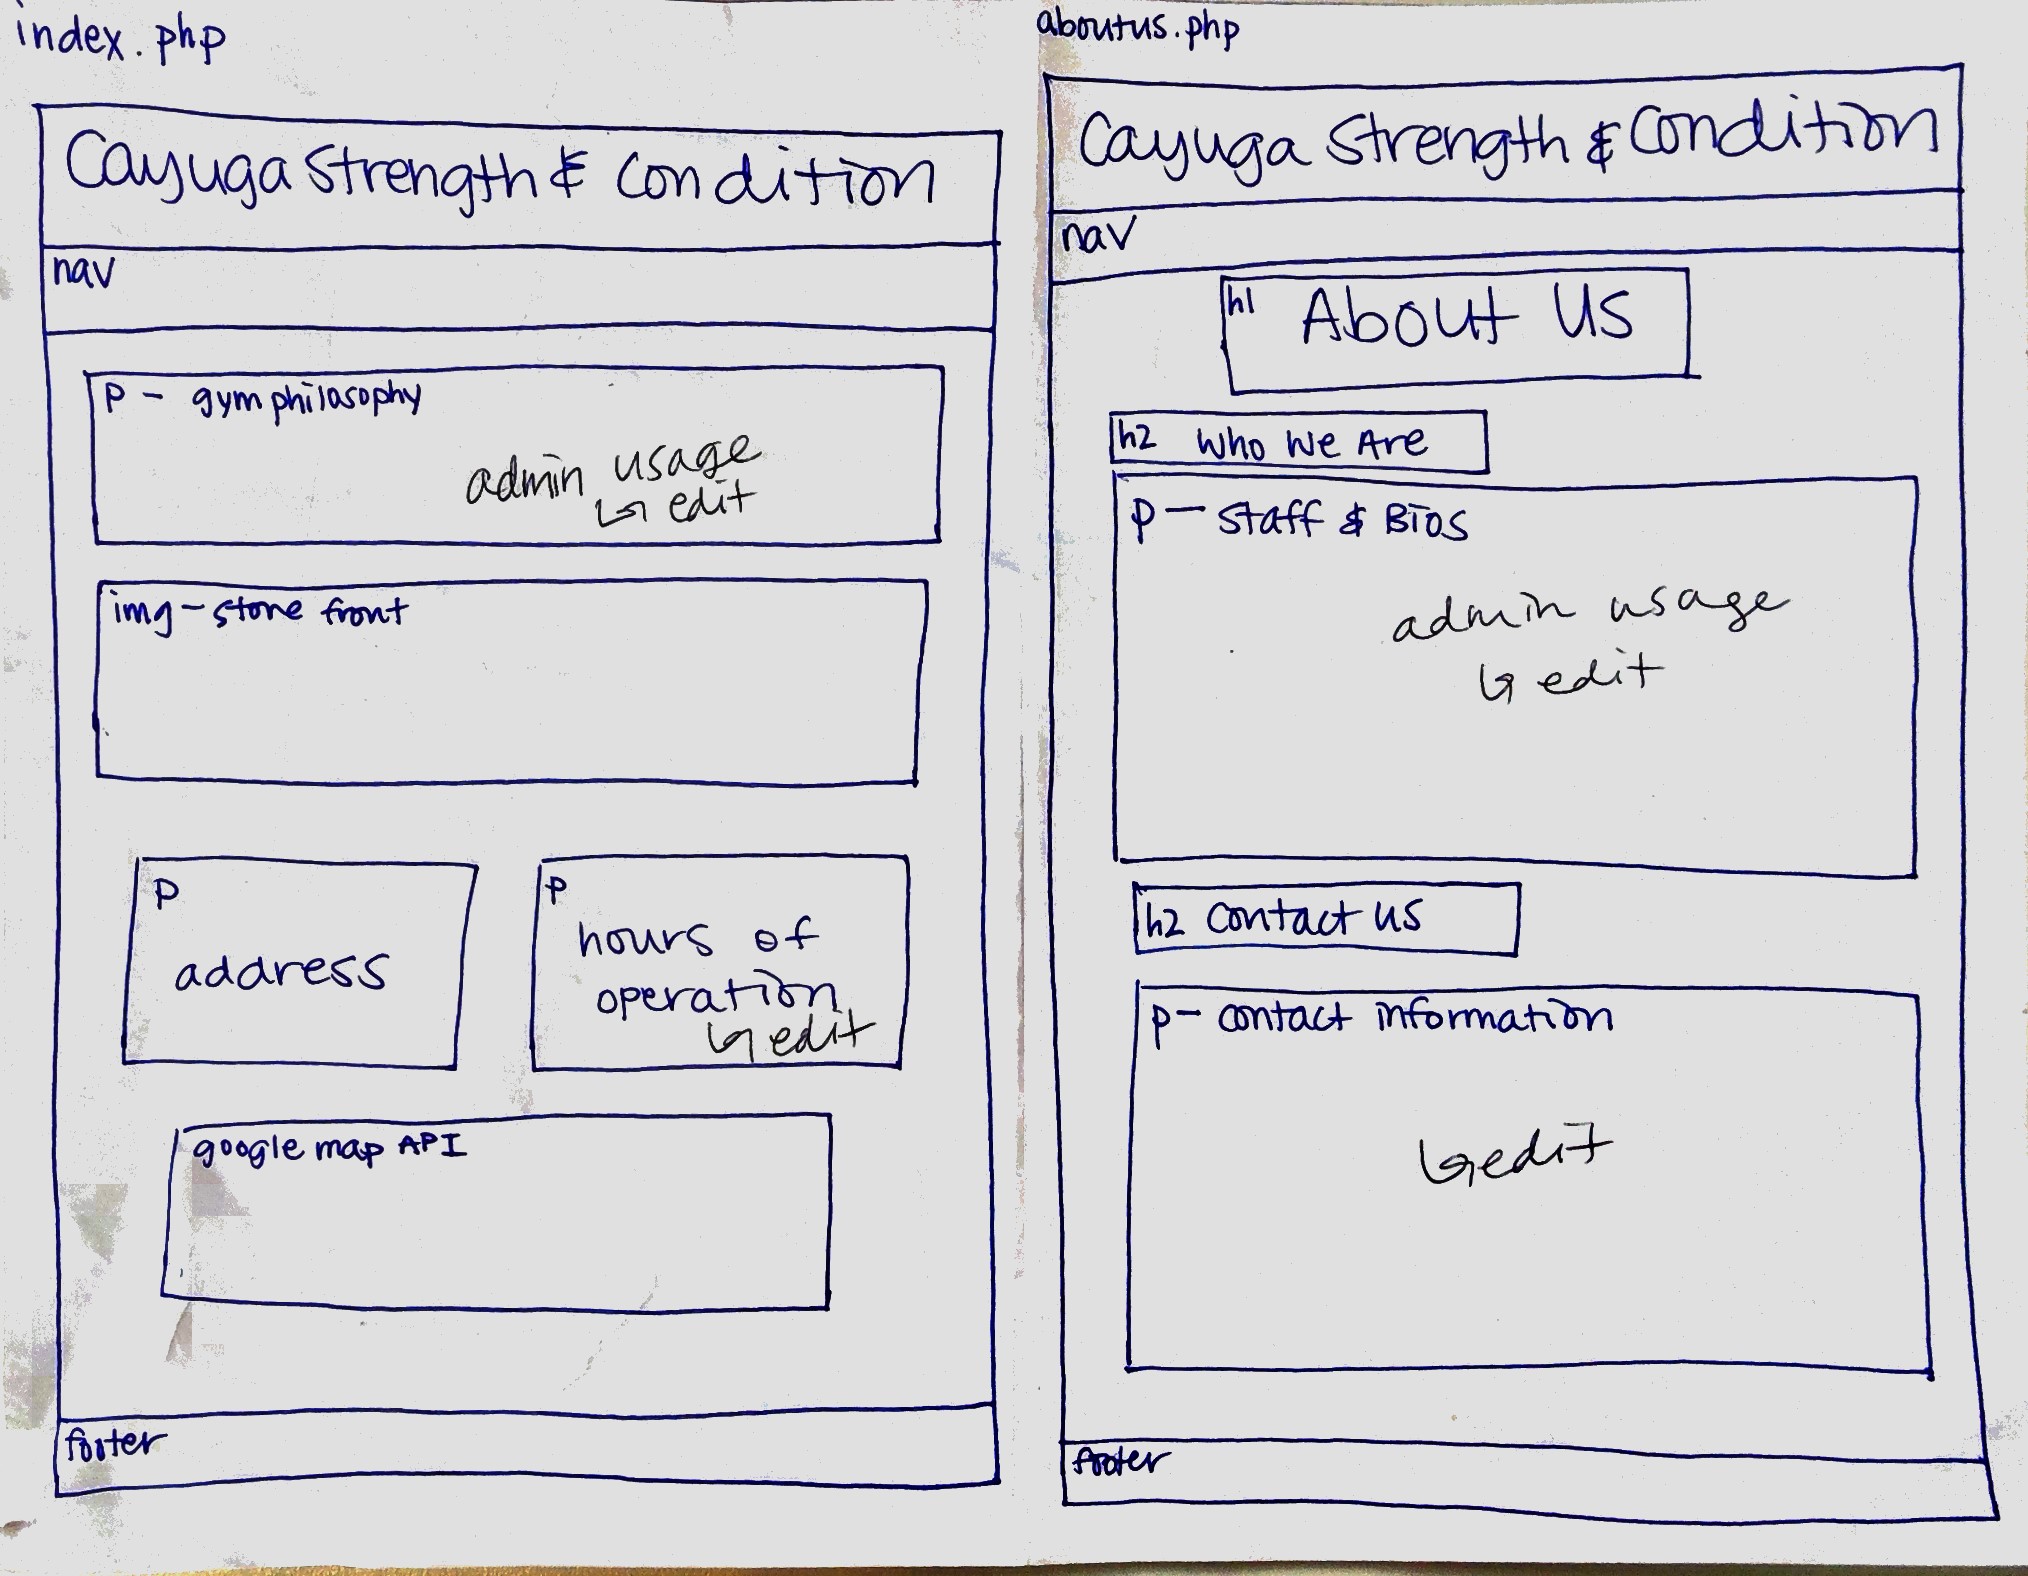 index.php
Cayuga Strength & Condition
nav
p - gym philosophy
admin usage
↳ edit
img - store front
p
address
p
hours of
operation
↳ edit
google map API
footer
aboutus.php
Cayuga Strength & Condition
nav
h1 About Us
h2 Who We Are
p - Staff & Bios
admin usage
↳ edit
h2 Contact Us
p - contact information
↳ edit
footer